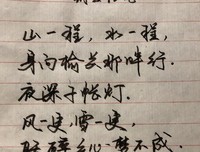 山一程，水一程，
身向榆关那畔行．
夜深千帐灯．
风一更，雪一更，
聒碎乡心梦不成．